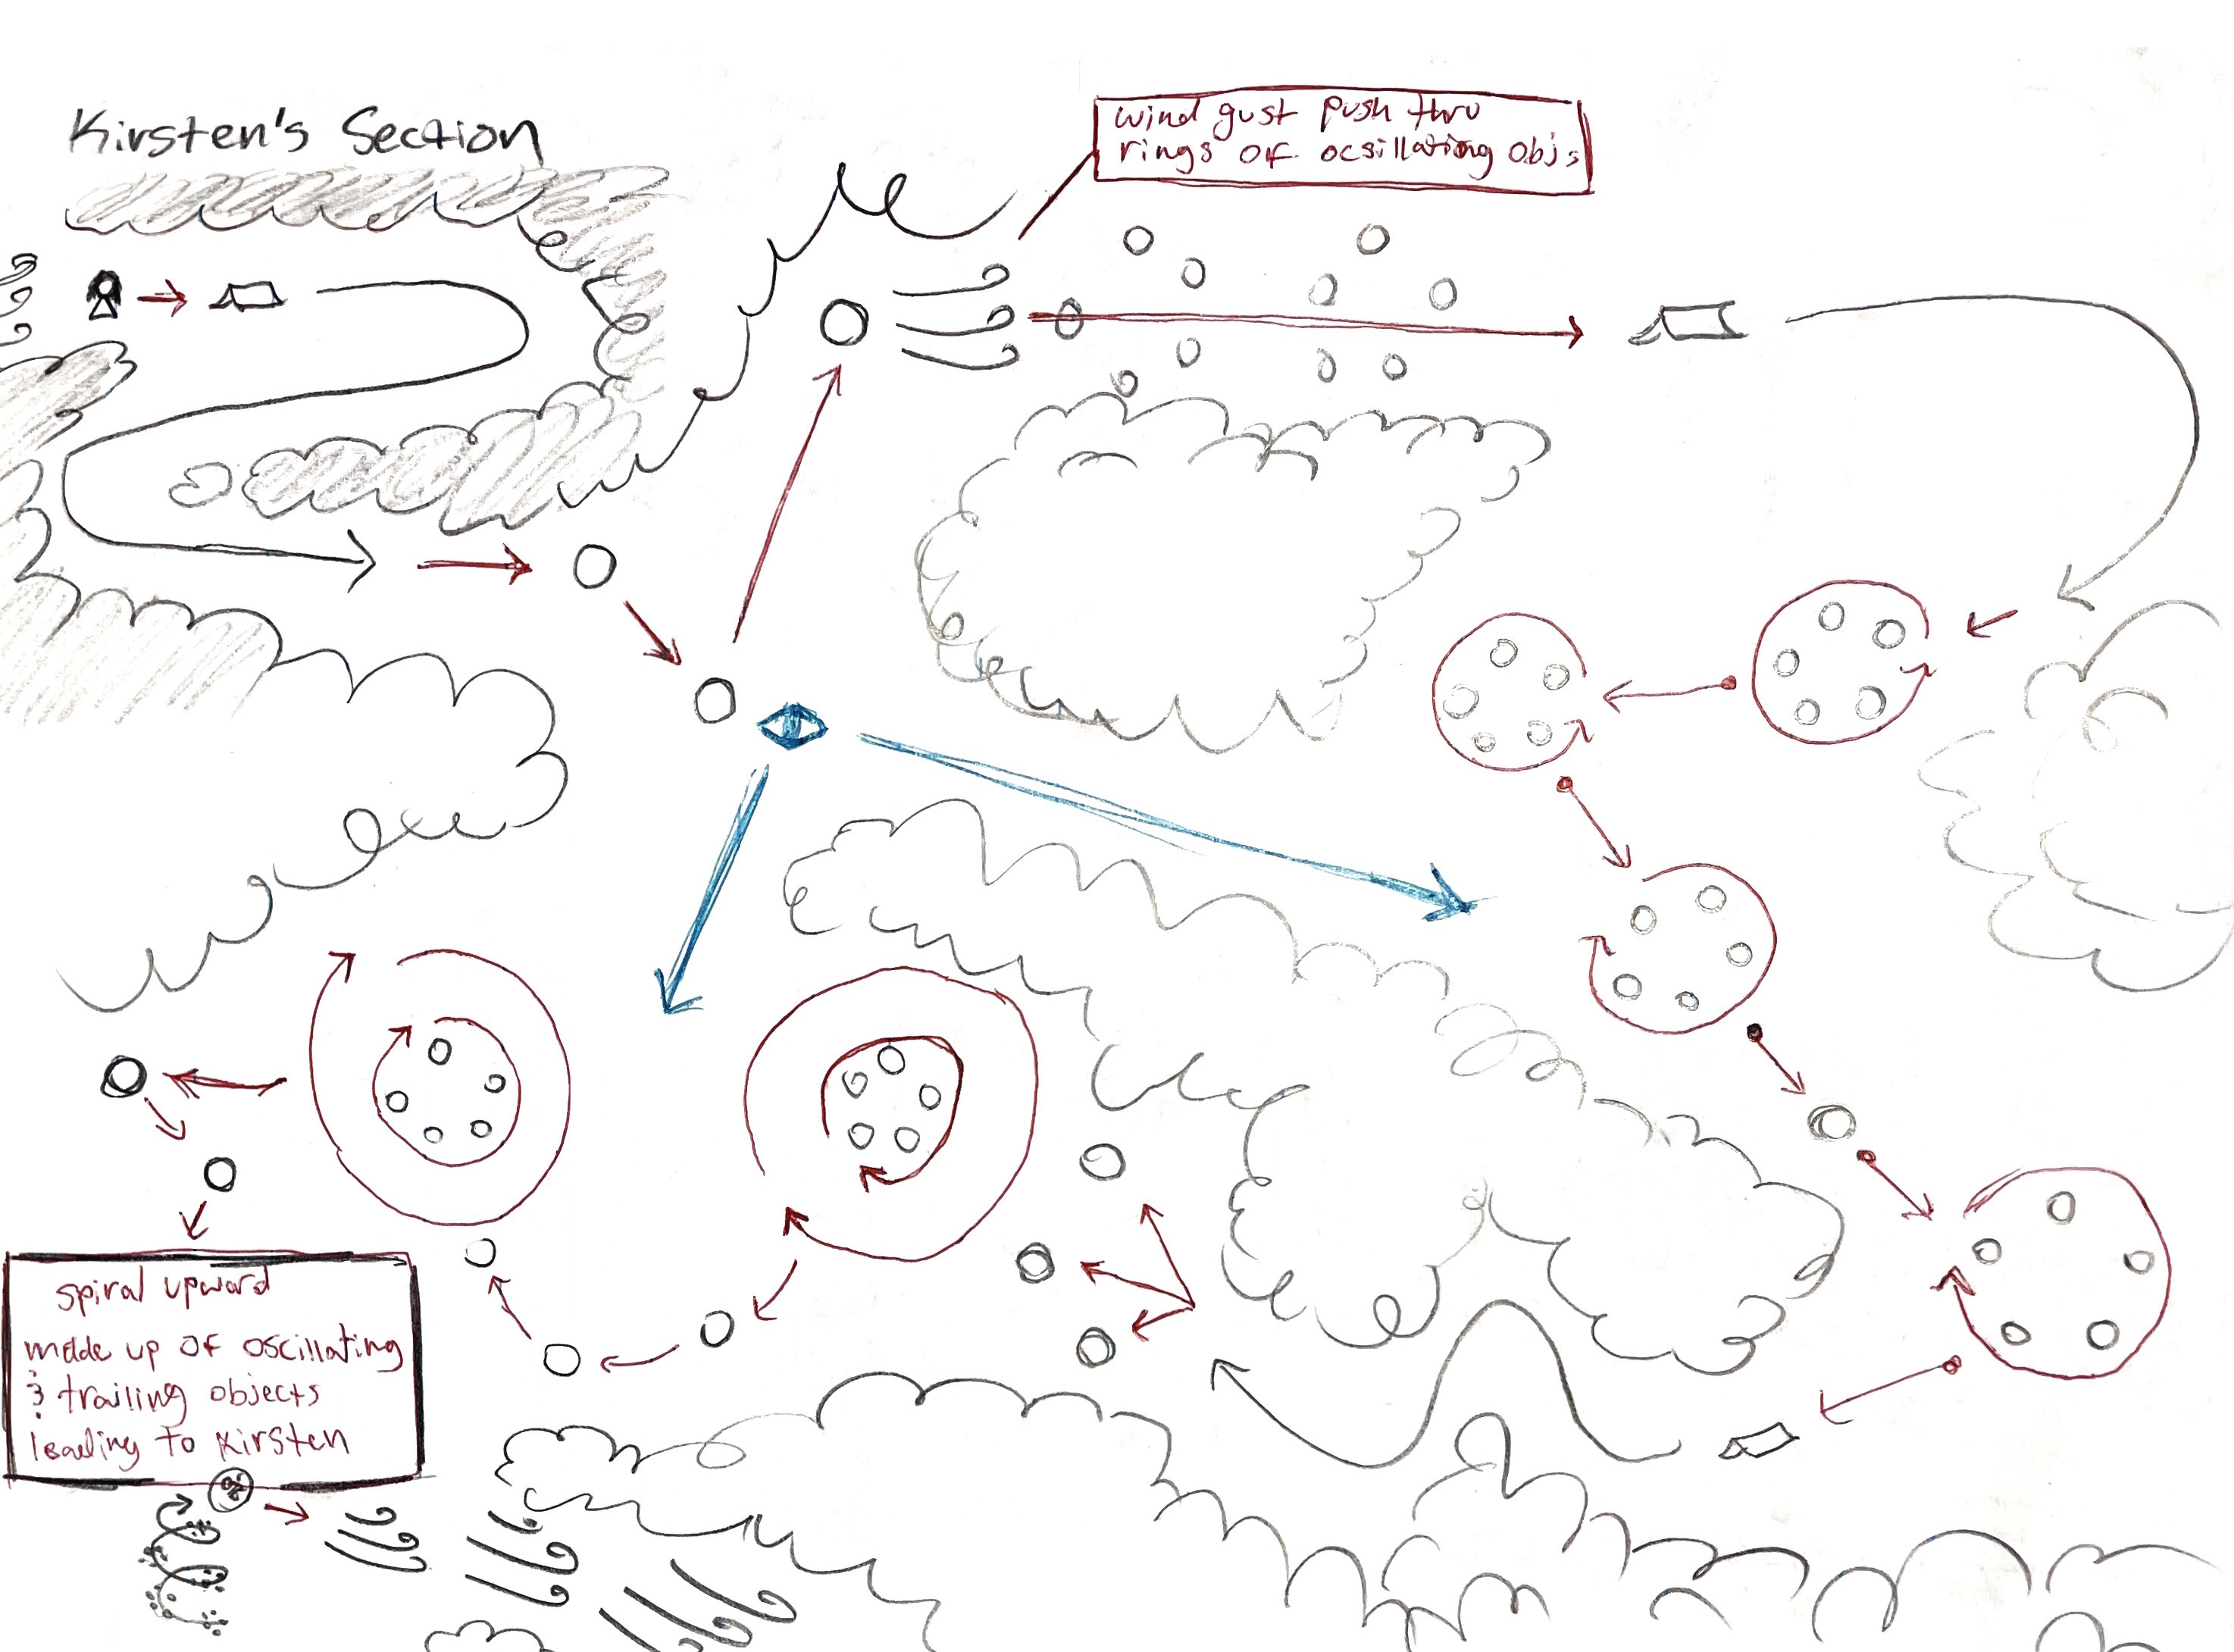 Kirsten's Section
wind gust push thru
rings of ocsillating Objs
spiral upward
made up of oscillating
& trailing objects
leading to Kirsten